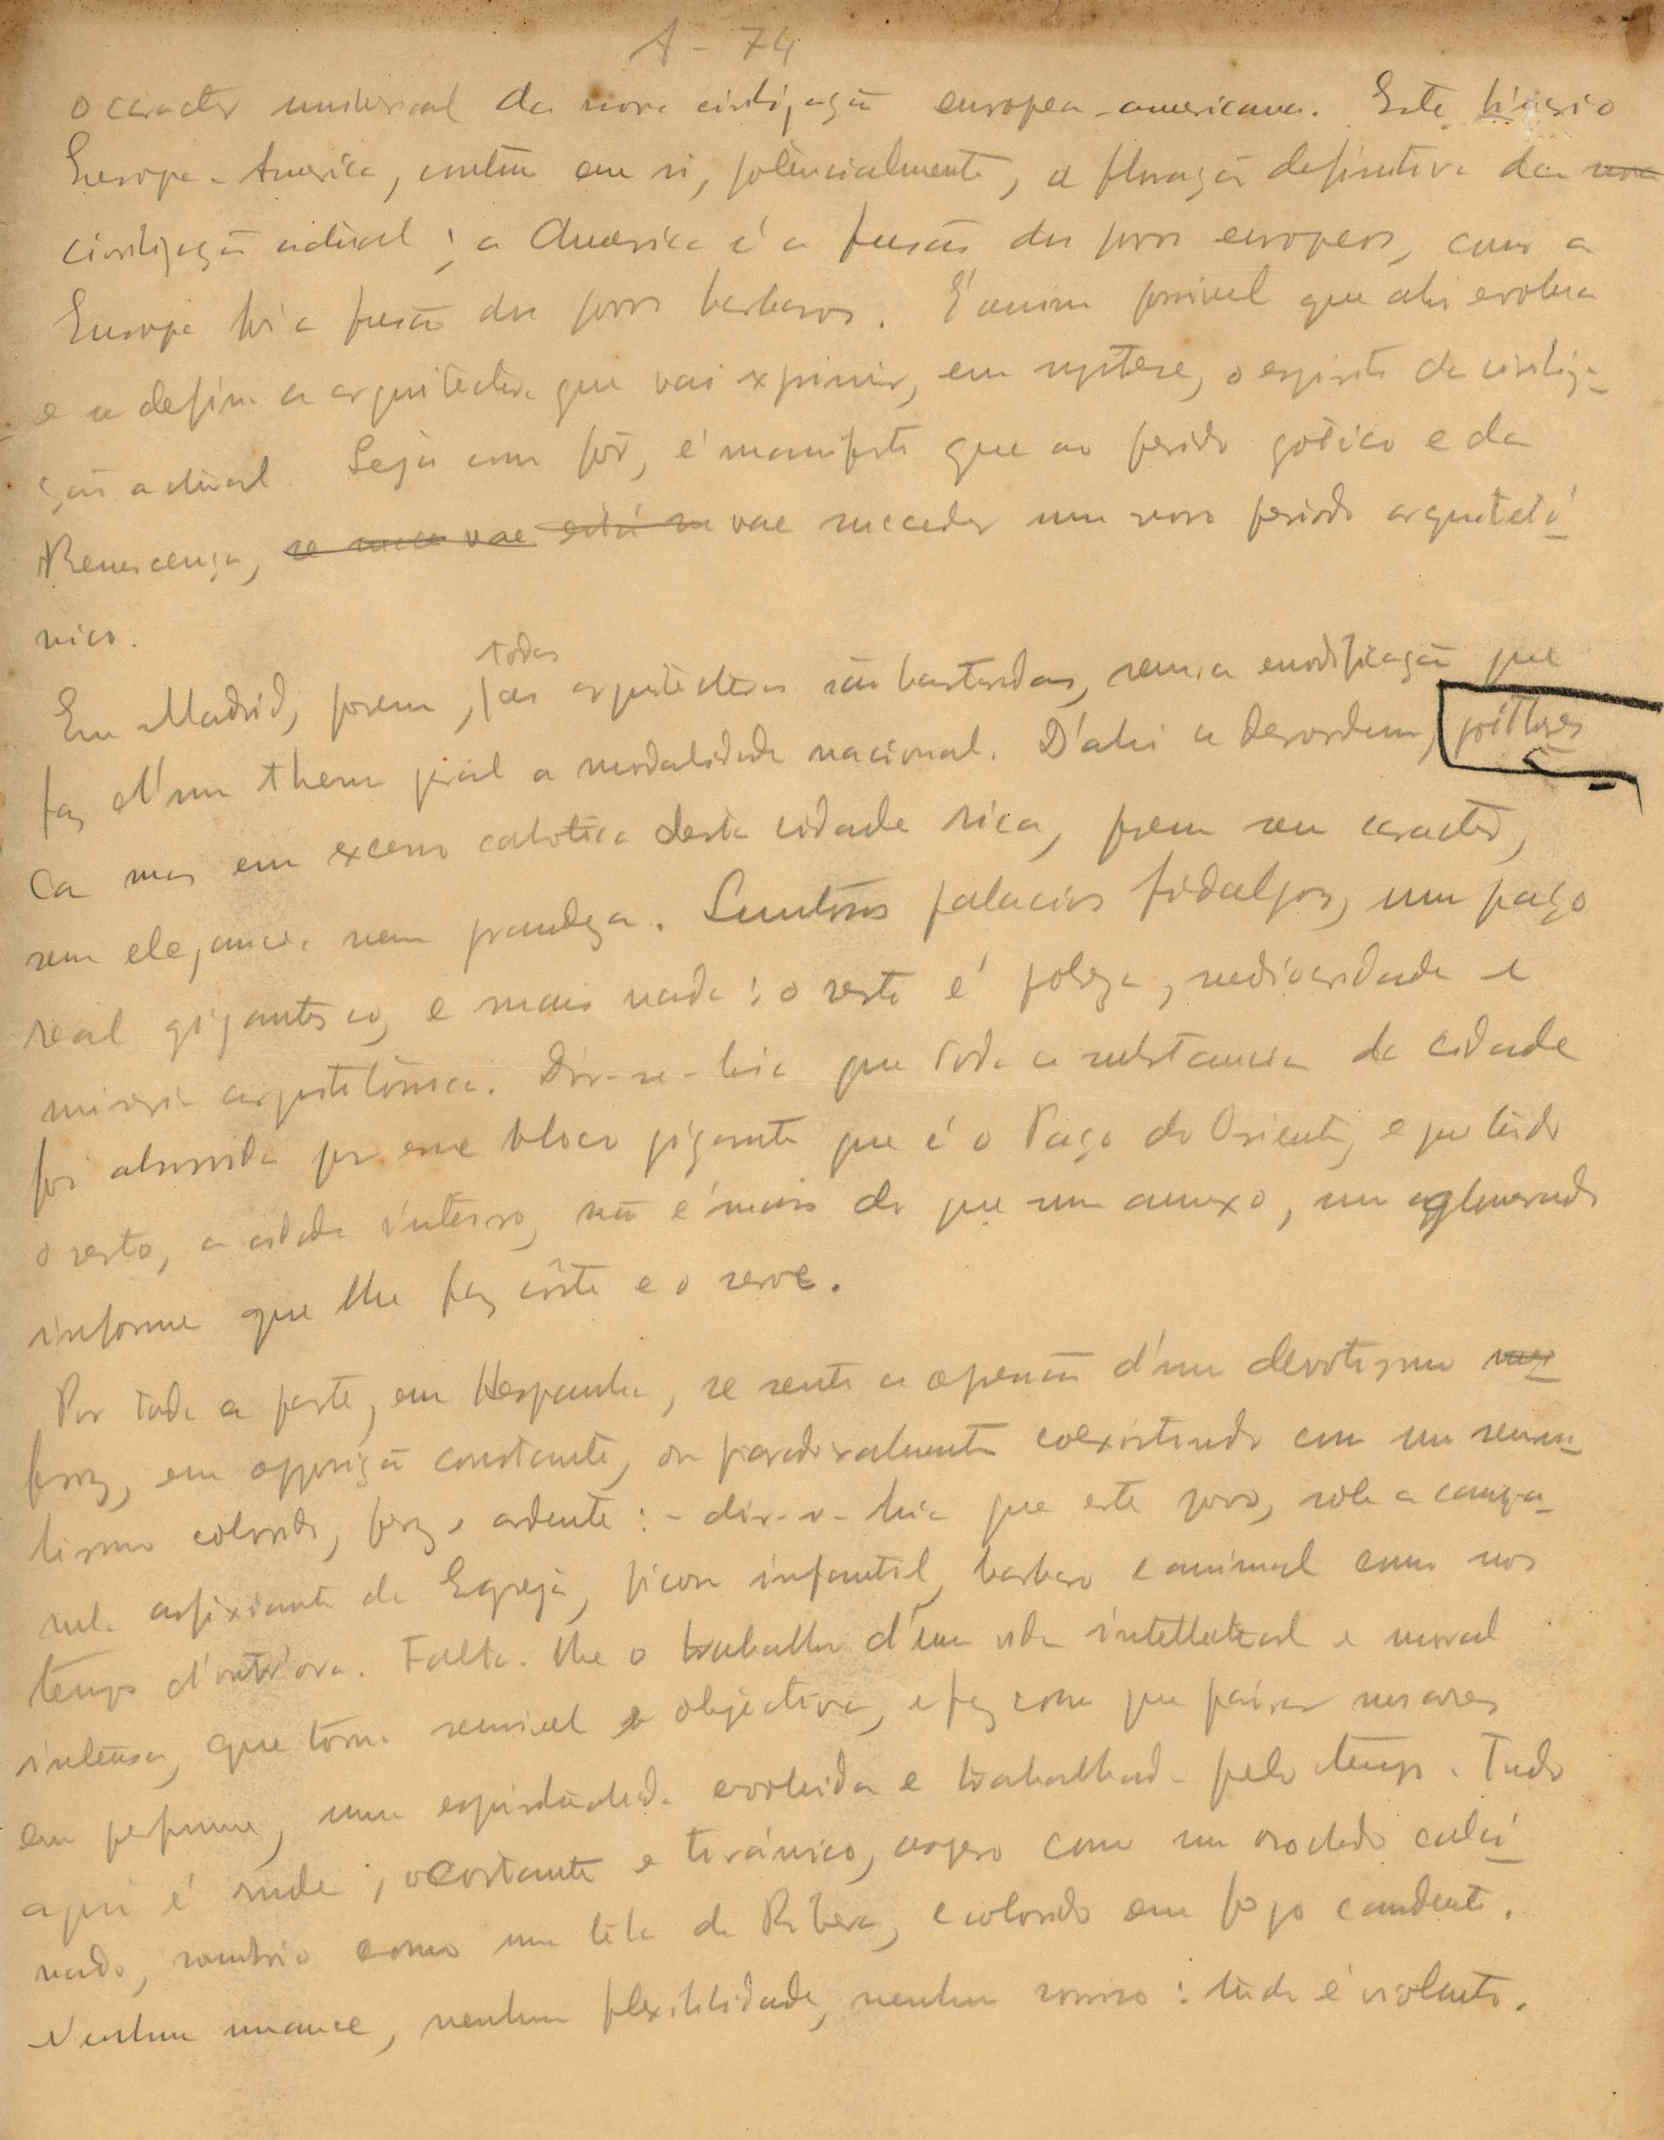 A - 74
o caracter universal da nova civilização europea-americana. Este binario
Europa-America, contem em si, potencialmente, a floração definitiva da nova
civilização actual; a America é a fusão dos povos europeos, como a
Europa foi a fusão dos povos barbaros. É assim possivel que ahi evolua
e se defina a arquitectura que vai exprimir, em syntese, o espirito da civiliza-
ção actual. Seja como fôr, é manifesto que ao periodo gótico e da
Renascença, vae succeder um novo periodo arquitetó-
nico.
Em Madrid, porem, todas as arquitecturas são bastardas, sem a modificação que
faz d'um thema geral a modalidade nacional. D'ahi a desordem, pittores
ca mas em excesso cahotica desta cidade rica, porem sem caracter,
sem elegancia nem grandeza. Sumtuosos palacios fidalgos, um paço
real gigantesco, e mais nada: o resto é pobreza, mediocridade e
miseria arquitetónica. Dir-se-hia que toda a substancia da cidade
foi absorvida por esse bloco gigante que é o Paço do Oriente, e que tudo
o resto, a cidade inteira, não é mais do que um annexo, um aglomerado
informe que lhe faz côrte e o serve.
Por toda a parte, em Hespanha, se sente a opressão d'um devotismo
feroz, em opposição constante, ou paradoxalmente coexistindo com um sensua-
lismo colorido, feroz e ardente: - dir-se-hia que este povo, sob a campa-
nula asfixiante da Egreja, ficou infantil, barbaro e animal como nos
tempos d'outr'ora. Falta-lhe o trabalho d'uma vida intellectual e moral
intensa, que torna sensivel e objectiva, e faz com que paire nos ares
em perfume, uma espiritualidade evoluida e trabalhada pelo tempo. Tudo
aqui é rude, e tiránico, aspero como um rochedo calci-
nado, sombrio como uma tela de Ribera, e colorido em fogo candente.
Nenhuma nuance, nenhuma flexibilidade, nenhum sorriso: tudo é violento.